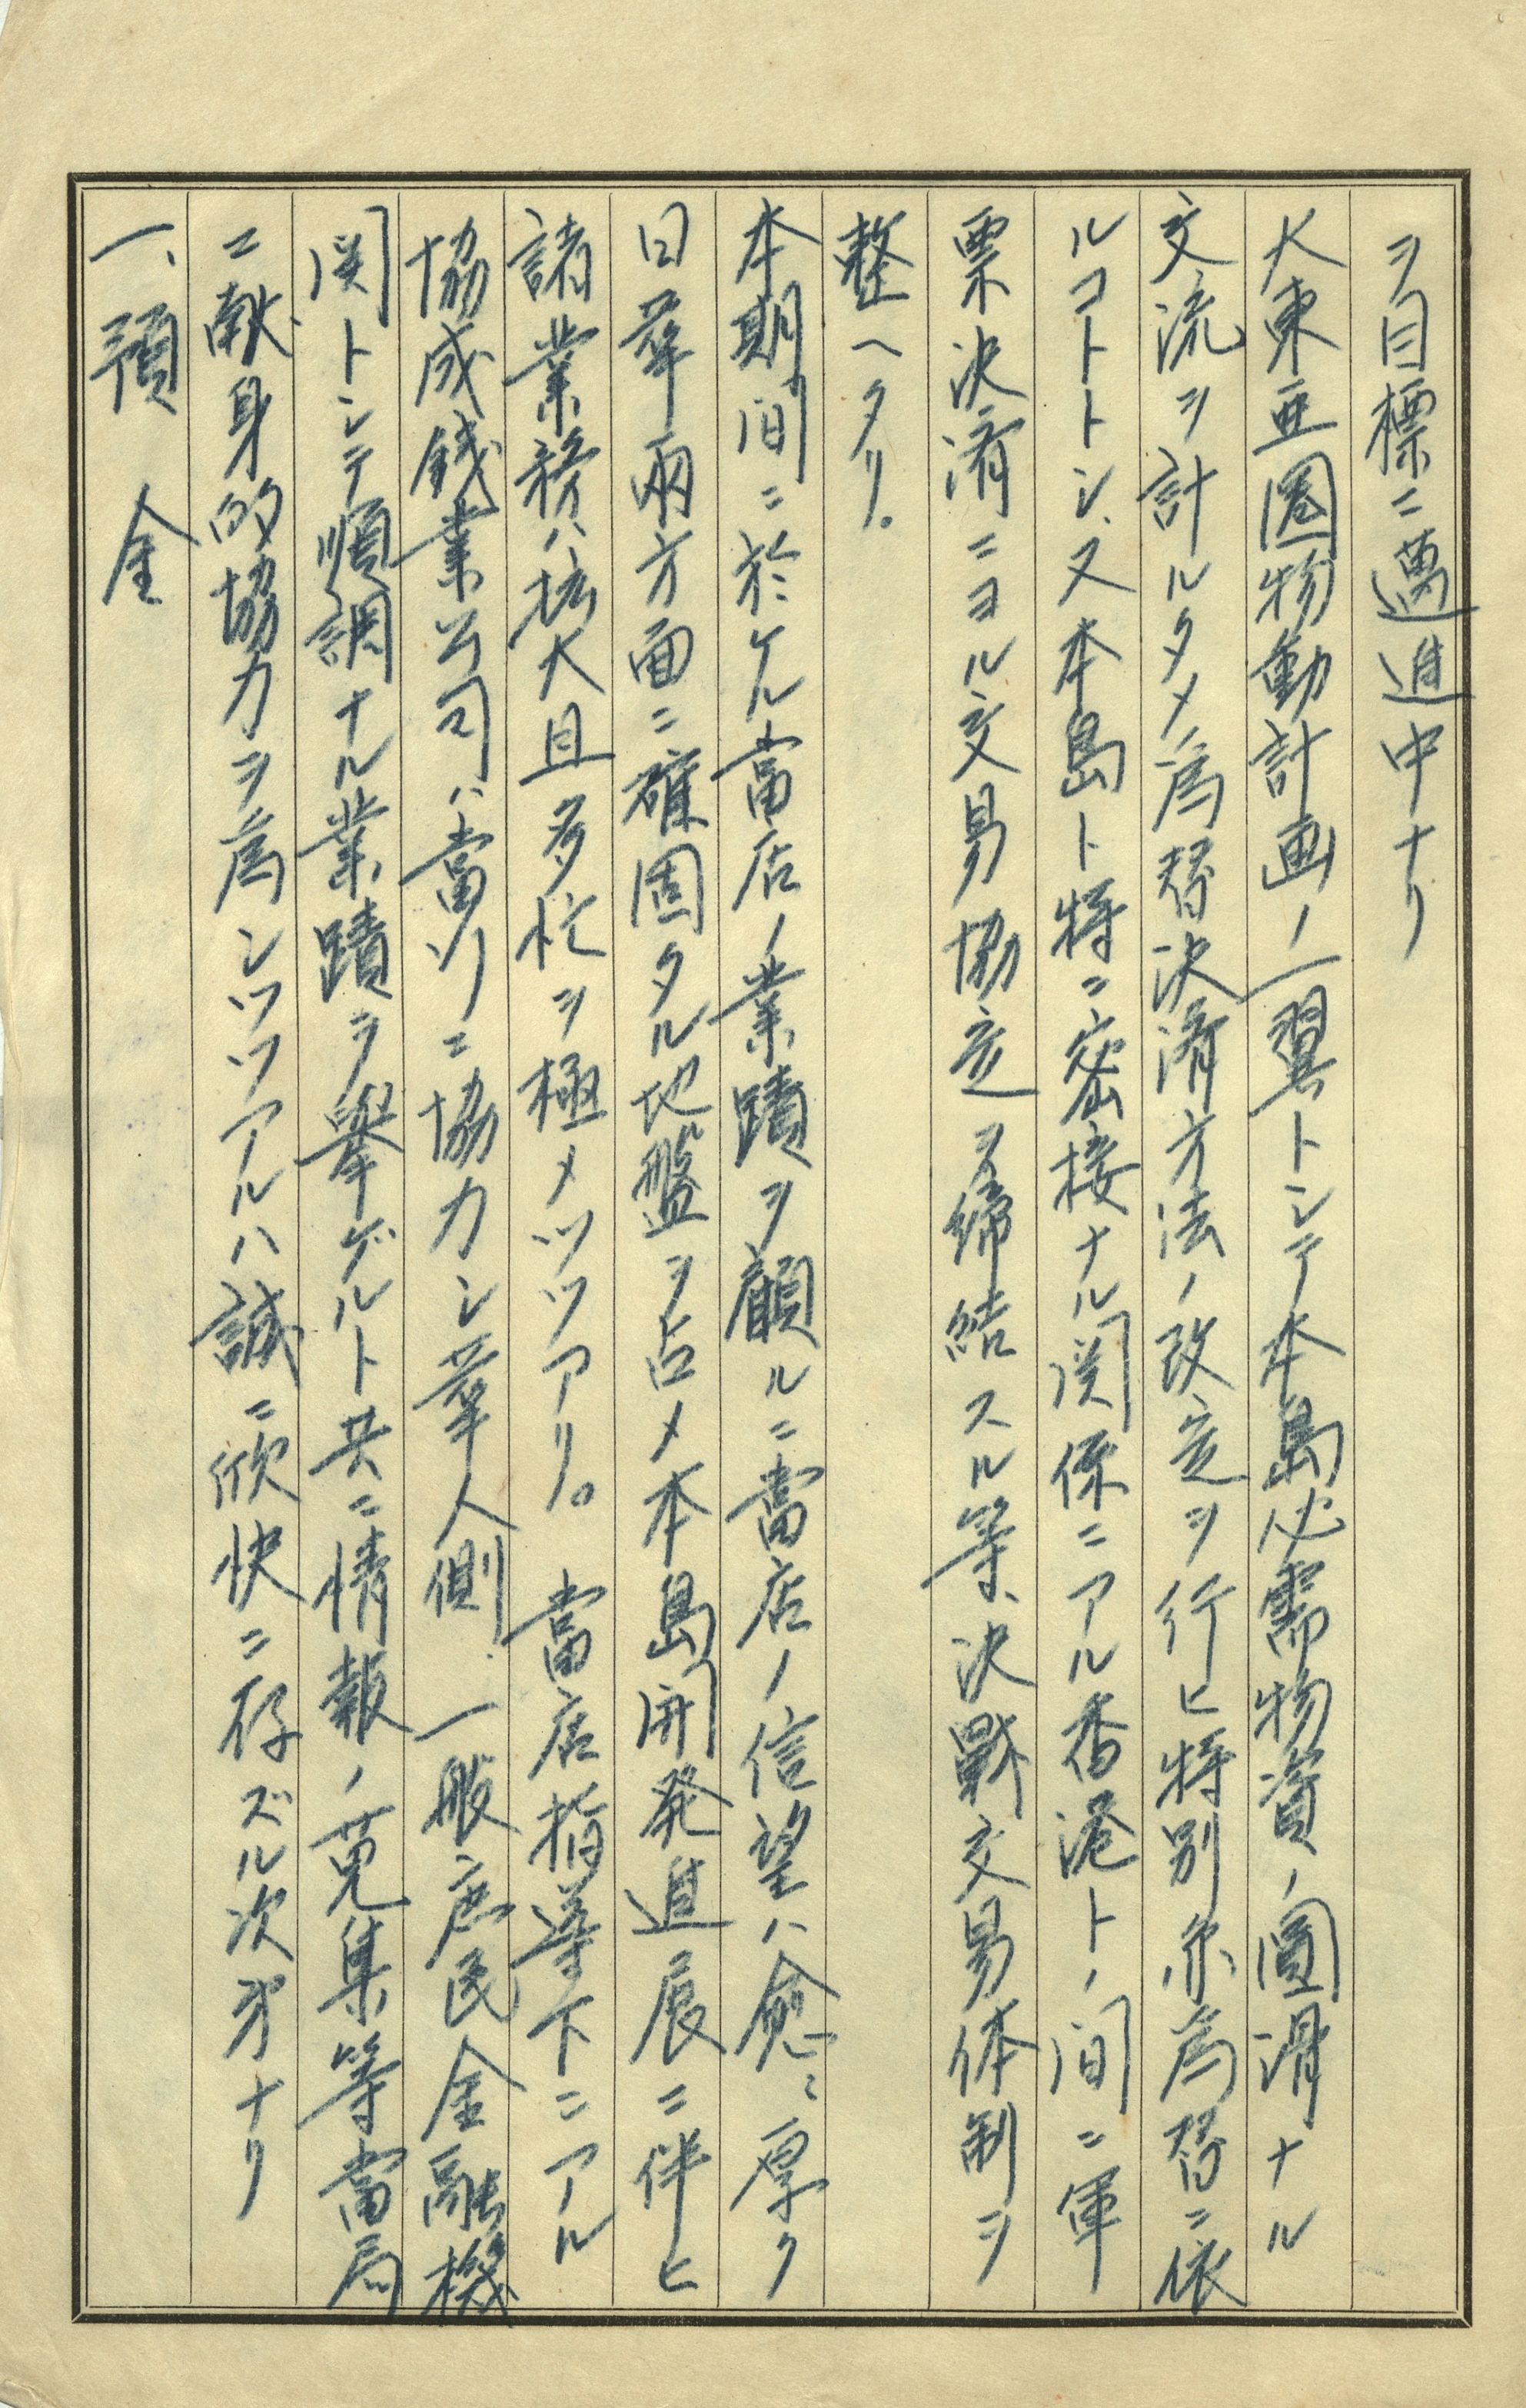 ヲ目標ニ邁進中ナリ
大東亜圏物動計画ノ一翼トシテ本島必需物資ノ圓滑ナル
交流ヲ計ルタメ為替決済方法ノ改定ヲ行ヒ特別尓為替ニ依
ルコトトシ、又本島ト特ニ密接ナル関係ニアル香港トノ間ニ軍
票決済ニヨル交易協定ヲ締結スル等、決戦交易体制ヲ
整ヘタリ。
本期間ニ於ケル當店ノ業蹟ヲ顧ルニ當店ノ信望ハ愈〻厚ク
日華兩方面ニ確固タル地盤ヲ占メ本島開発進展ニ伴ヒ
諸業務ハ拡大且多忙ヲ極メツツアリ。 當店指導下ニアル
協成銭業公司ハ當行ニ協力シ華人側 一般庶民金融機
関トシテ順調ナル業蹟ヲ擧ゲルト共ニ情報ノ蒐集等當局
ニ献身的協力ヲ為シツツアルハ誠ニ欣快ニ存ズル次第ナリ
一、預 金